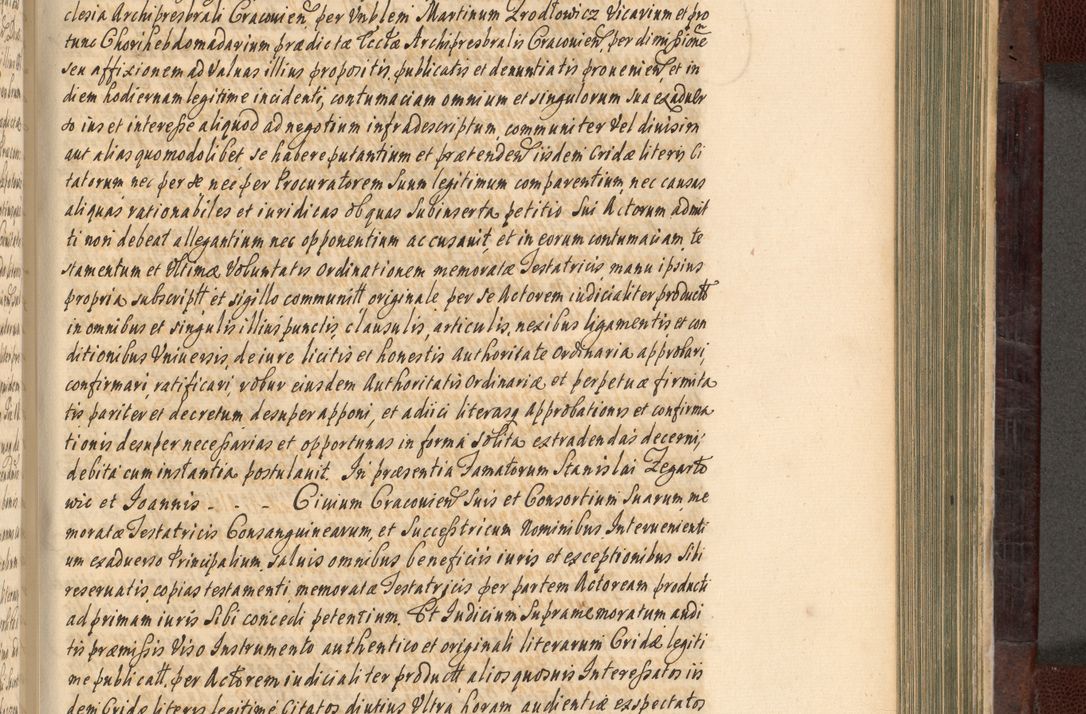 clesia Archipresbrali Cracovień, per Vnblem Martinum Zrodłowicz Vicarium et pro
tunc Chori hebdomadarium prædictæ Eccæ Archipresbralis Cracovień, per dimissionē
seu affixionem ad Valuas illius propositis, publicatis et denuntiatis provenień, et in
diem hodiernam legitime incidenti, contumaciam omnium et singulorum sua exadver
so ius et interesse aliquod ad negotium infradescriptum communiter vel divisim
aut alias quomodolibet se habere putantium et prætendeń iisdem Cridæ literis Ci
tatorum nec per se nec per Procuratorem Suum legitimum comparentium, nec causas
aliquas rationabiles et iuridicas ob quas Subinserta petitio Sui Actorum admit
ti non debeat allegantium nec opponentium accusavit, et in eorum contumaciam te
stamentum et Vltimæ Voluntatis Ordinationem memoratæ Testatricis manu ipsius
propria subscriptt et sigillo communitt originale per se Actorem iudicialiter productt
in omnibus et singulis illius punctis, clausulis, articulis, nexibus ligamentis et con
ditionibus Vniversis, de iure licitis et honestis Authoritate Ordinaria approbari,
confirmari, ratificari, robur eiusdem Authoritatis Ordinariæ et perpetuæ firmita
tis pariter et decretum desuper apponi, et adiici literasq Approbationis et confirma
tionis desuper necessarias et opportunas in forma solita extradendas decerni,
debita cum instantia postulavit. In præsentia Famatorum Stanislai Zegarto
wic et Ioannis - - - Civium Cracovień Suis et Consortium Suarum me
moratæ Testatricis Consanguinearum, et Successtricum Nominibus Intervenienti
um exadverso Principalium, Salvis omnibus beneficiis iuris et exceptionibus Sibi
reservatis, copias testamenti memoratæ Testatricis per partem Actoream producti
ad primam iuris Sibi concedi petentium. Et Iudicium Supramemoratum audi
tis præmissis Viso Instrumento authentico et originali literarum Cridæ legiti
me publicatt, per Actorem iudicialiter productt, alios quosvis Interessatos iis
dem Cridæ literis legitime Citatos diutius Vltra horam audientiæ exspectatos